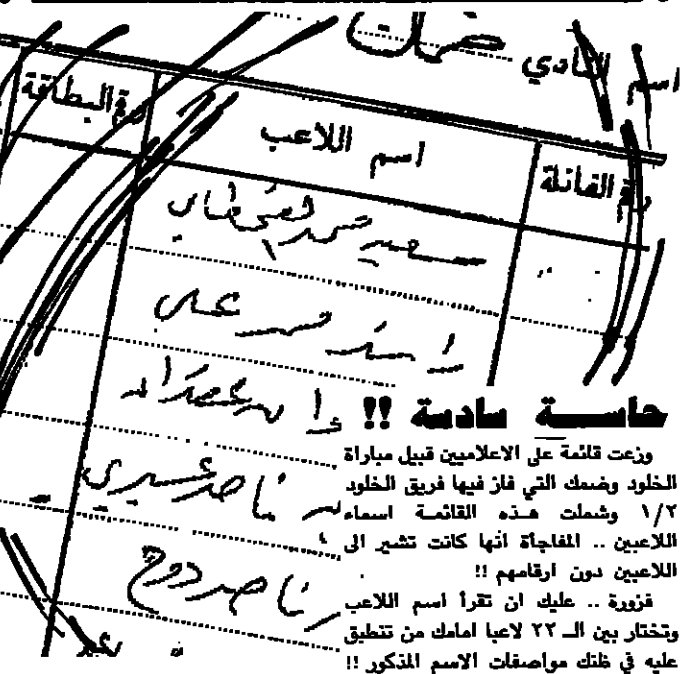 اسم النادي ضمك
رقم الفانلة
اسم اللاعب
رقم البطاقة
سعيد محمد القحطاني
ناصر عسيري
ناصر دوح
حاسة سادسة !!
وزعت قائمة على الاعلاميين قبيل مباراة
الخلود وضمك التي فاز فيها فريق الخلود
١/٢ وشملت هذه القائمة اسماء
اللاعبين .. المفاجأة انها كانت تشير الى
اللاعبين دون ارقامهم !!
فزورة .. عليك ان تقرأ اسم اللاعب
وتختار بين الـ ٢٢ لاعبا امامك من تنطبق
عليه في ظنك مواصفات الاسم المذكور !!